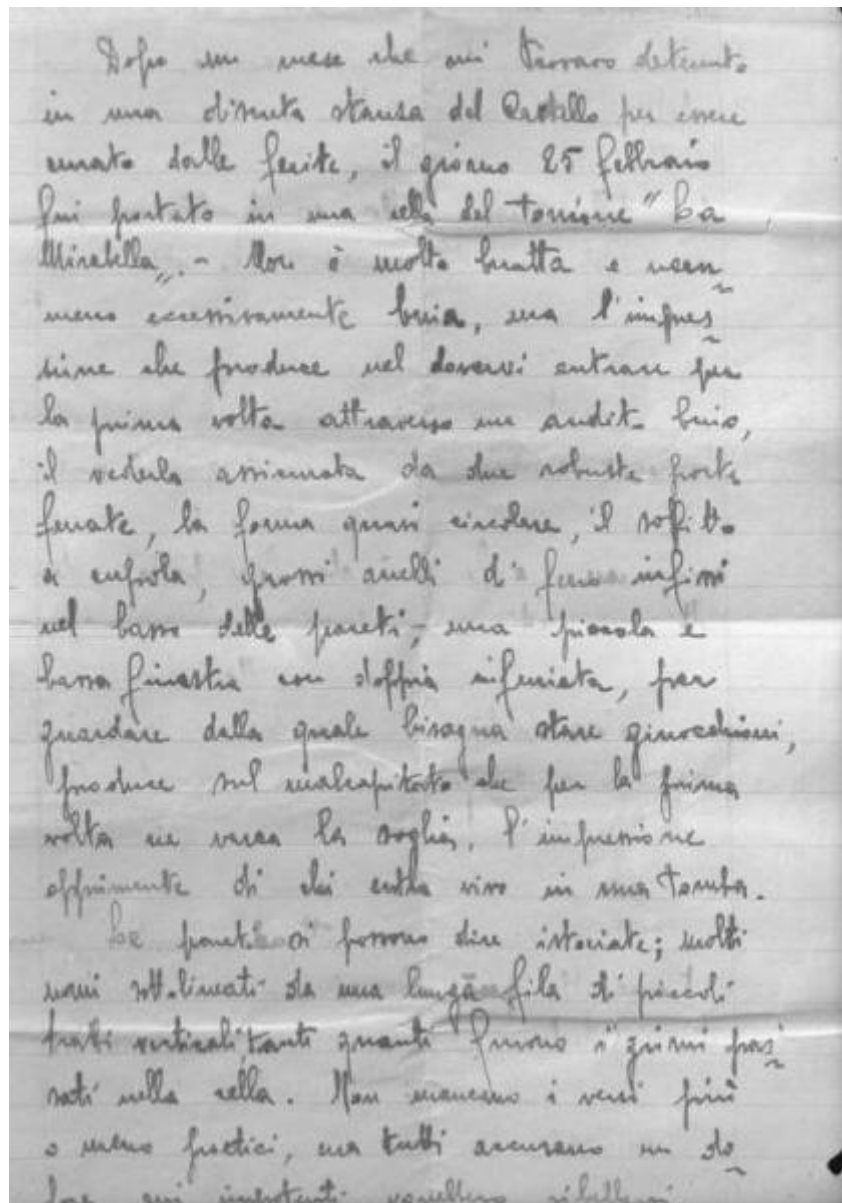 Dopo un mese che mi trovavo detenuto
in una discreta stanza del Castello per essere
curato dalle ferite, il giorno 25 febbraio
fui portato in una cella del torrione "La
Mirabella„. - Non è molto brutta e nean
meno eccessivamente buia, ma l'impres
sione che produce nel dovervi entrare per
la prima volta attraverso un andito buio,
il vederla assicurata da due robuste porte
ferrate, la forma quasi circolare, il soffitto
a cupola, grossi anelli di ferro infissi
nel basso delle pareti, una piccola e
bassa finestra con doppia inferriata, per
guardare dalla quale bisogna stare ginocchioni,
produce sul malcapitato che per la prima
volta ne varca la soglia, l'impressione
opprimente di chi entra vivo in una tomba.
Le pareti si possono dire istoriate; molti
nomi sottolineati da una lunga fila di piccoli
tratti verticali, tanti quanti furono i giorni pas
sati nella cella. Non mancano i versi più
o meno poetici, ma tutti accusano un do
lore cui impotenti ribellarsi